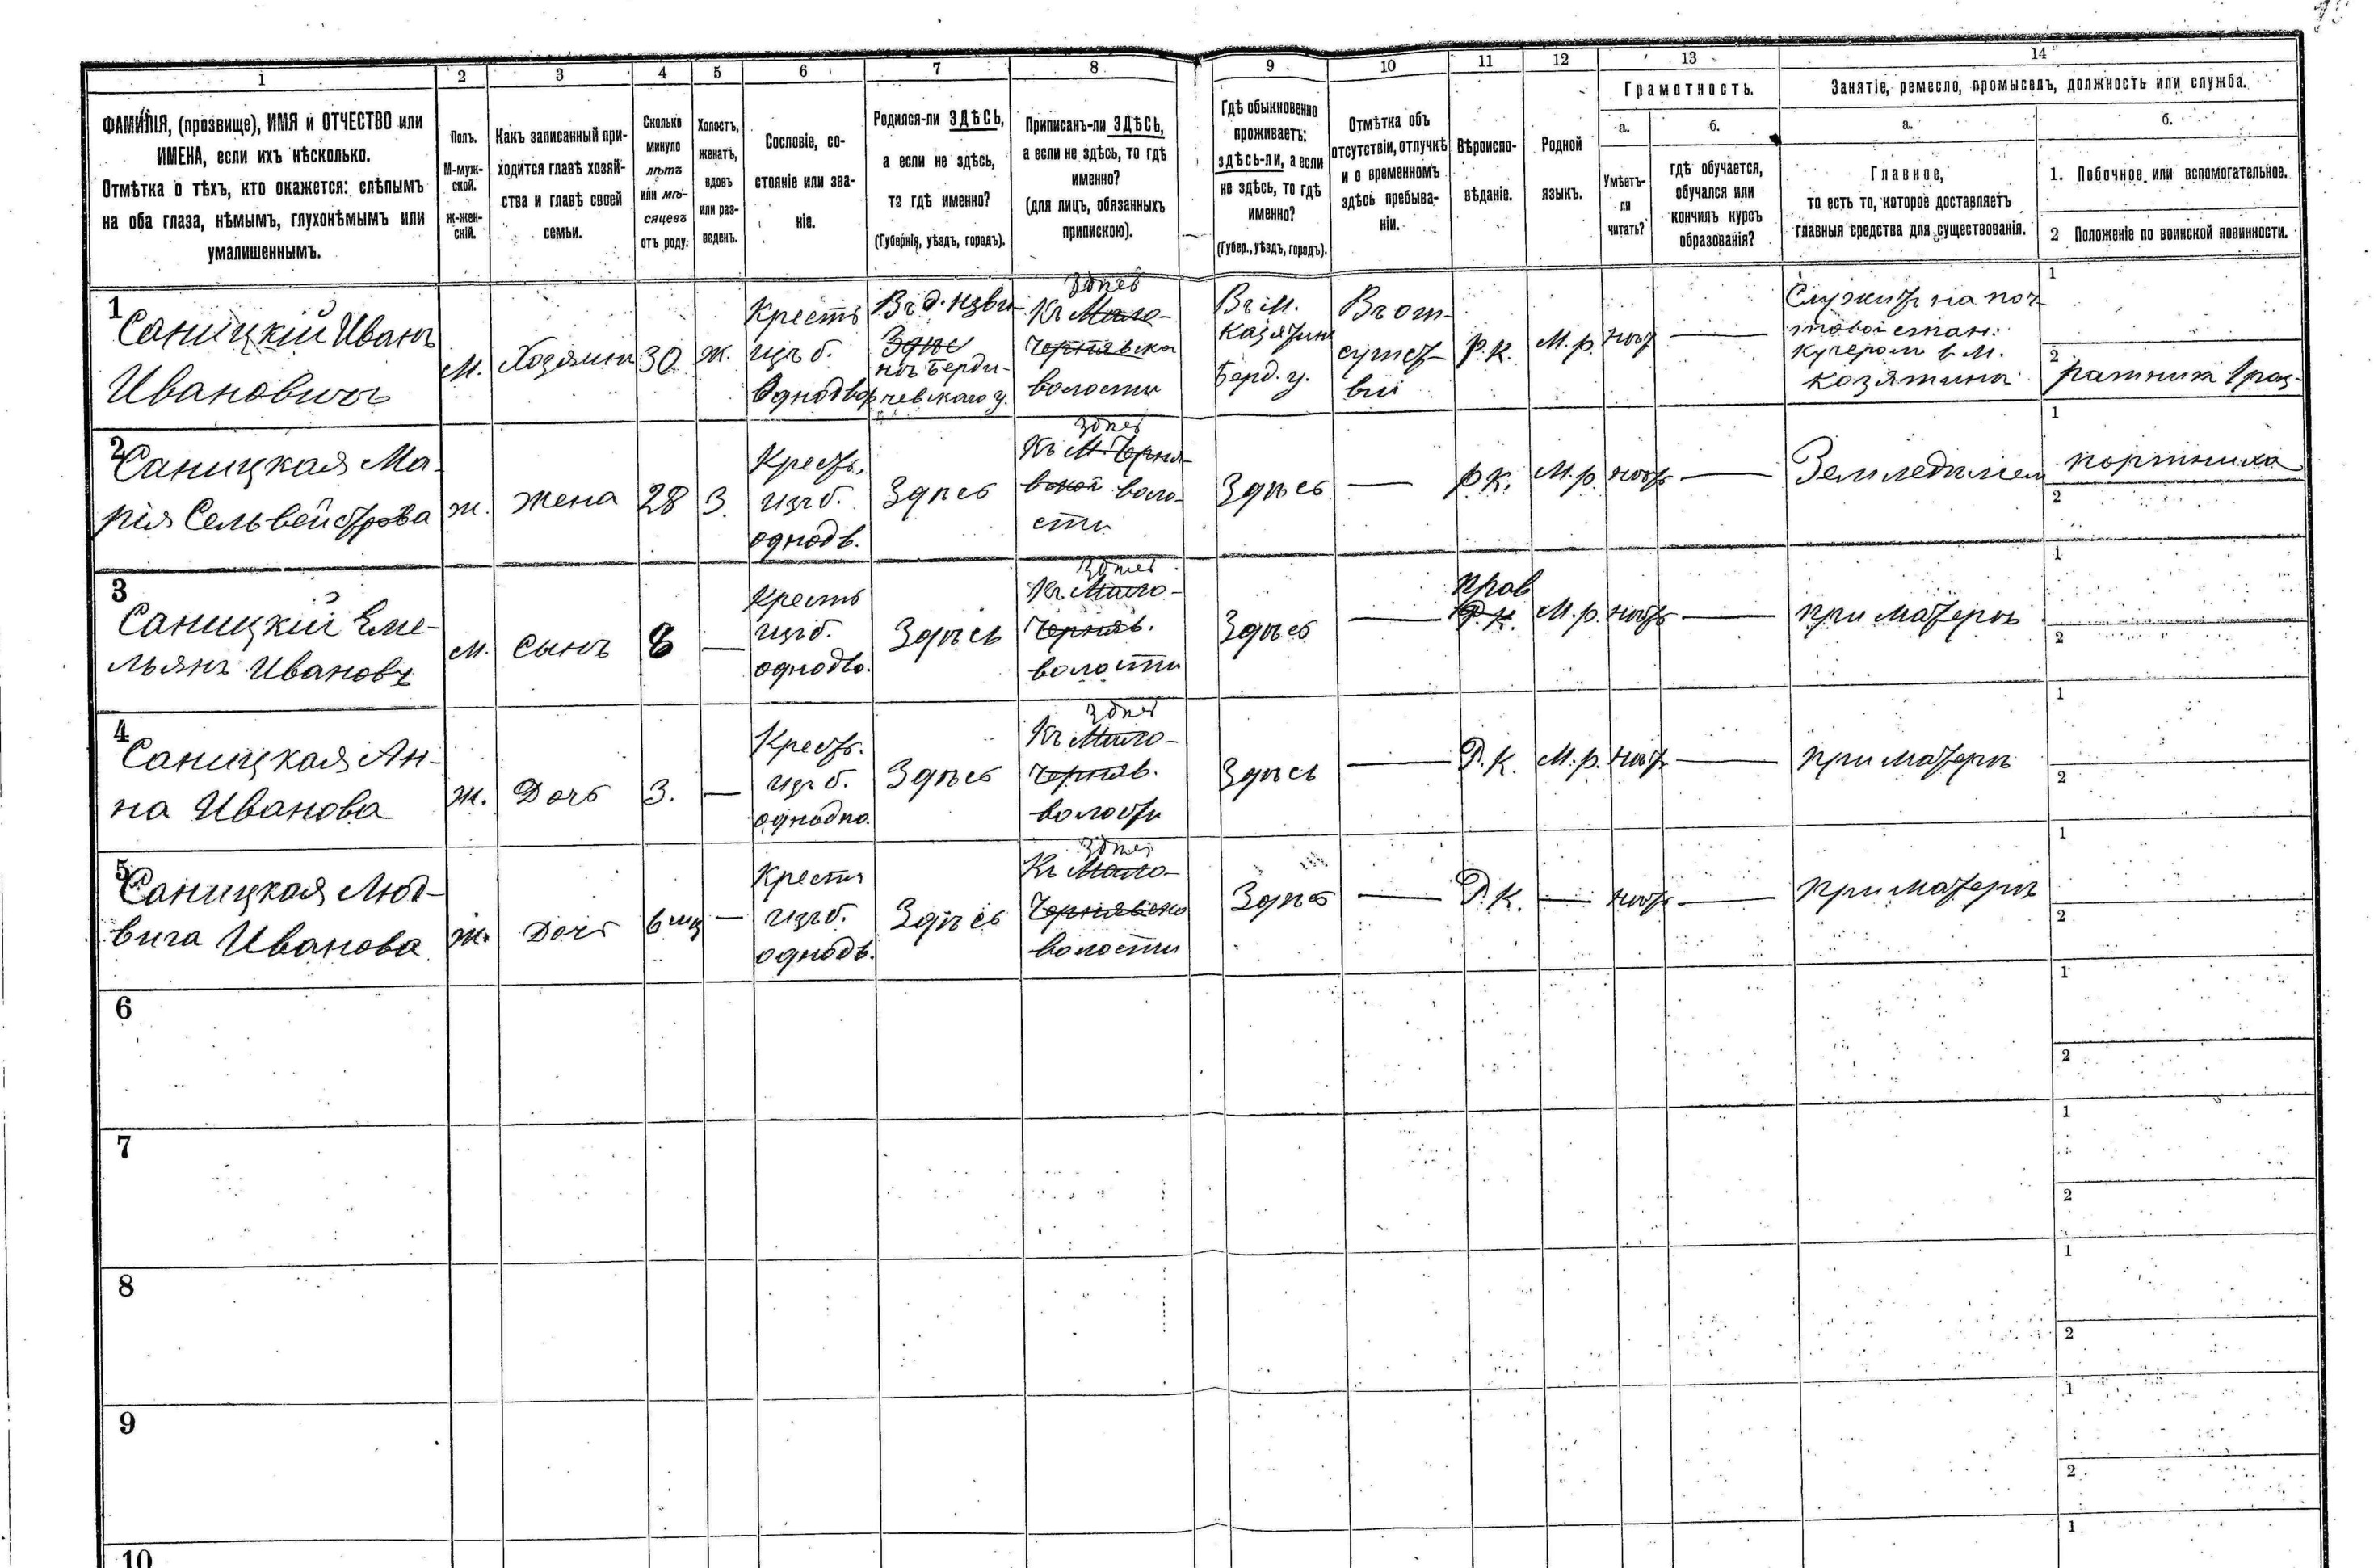 1 2 3 4 5 6 7 8 9 10 11 12 13 14
ФАМИЛІЯ, (прозвище), ИМЯ и ОТЧЕСТВО или
ИМЕНА, если ихъ нѣсколько.
Отмѣтка о тѣхъ, кто окажется: слѣпымъ
на оба глаза, нѣмымъ, глухонѣмымъ или
умалишеннымъ.
Полъ.
М-муж-
ской.
ж-жен-
скій.
Какъ записанный при-
ходится главѣ хозяй-
ства и главѣ своей
семьи.
Сколько
минуло
лѣтъ
или мѣ-
сяцевъ
отъ роду.
Холостъ,
женатъ,
вдовъ
или раз-
веденъ.
Сословіе, со-
стояніе или зва-
ніе.
Родился-ли ЗДѢСЬ,
а если не здѣсь,
то гдѣ именно?
(Губернія, уѣздъ, городъ).
Приписанъ-ли ЗДѢСЬ,
а если не здѣсь, то гдѣ
именно?
(для лицъ, обязанныхъ
припискою).
Гдѣ обыкновенно
проживаетъ:
здѣсь-ли, а если
не здѣсь, то гдѣ
именно?
(Губер., уѣздъ, городъ).
Отмѣтка объ
отсутствіи, отлучкѣ
и о временномъ
здѣсь пребыва-
ніи.
Вѣроиспо-
вѣданіе.
Родной
языкъ.
Грамотность.
а.
Умѣетъ-
ли
читать?
б.
гдѣ обучается,
обучался или
кончилъ курсъ
образованія?
Занятіе, ремесло, промыселъ, должность или служба.
а.
Главное,
то есть то, которое доставляетъ
главныя средства для существованія.
б.
1. Побочное или вспомогательное.
2 Положеніе по воинской повинности.
1
Саницкій Иванъ
Ивановичъ
М.
Хозяинъ
30
Ж.
Кресть
изъ б.
Однодвор
Въ д.
Здѣс
Берди-
чевскаго у.
здѣсь
Къ Мало-
Чернявско
волости
Въ м.
Казятин
Берд. у.
Въ от-
сутст-
віи
Р.К.
М.р.
нѣт
—
Служит на поч-
товой стан.
Кучером в м.
Козятина
1
2
ратник 1 раз.
2
Саницкая Ма-
рія Сельвейстрова
Ж.
жена
28
З.
Крест.
изъ б.
однодв.
Здѣсь
здѣсь
Къ М. Черня-
вской воло-
сти
Здѣсь
—
Р.К.
М.р.
нѣтъ
—
Земледѣлием
1
портниха
2
3
Саницкій Еме-
льянъ Ивановъ
М.
Сынъ
8
—
Кресть
изъ б.
однодво.
Здѣсь
здѣсь
Къ Мало-
Черняв.
волости
Здѣсь
—
Прав
Р.К.
М.р.
нѣтъ
—
при матеръ
1
2
4
Саницкая Ан-
на Иванова
Ж.
Дочь
3.
—
Крест.
изъ б.
Здѣсь
здѣсь
Къ Мало-
Черняв.
волости
Здѣсь
—
Р.К.
М.р.
нѣт
—
при матеръ
1
2
5
Саницкая Люд-
вига Иванова
Ж.
Дочь
6 мц
—
Кресть
изъ б.
однодв.
Здѣсь
здѣсь
Къ Мало-
Чернявско
волости
Здѣсь
—
Р.К.
—
нѣтъ
—
при матеръ
1
2
6
1
2
7
1
2
8
1
2
9
1
2
10
1